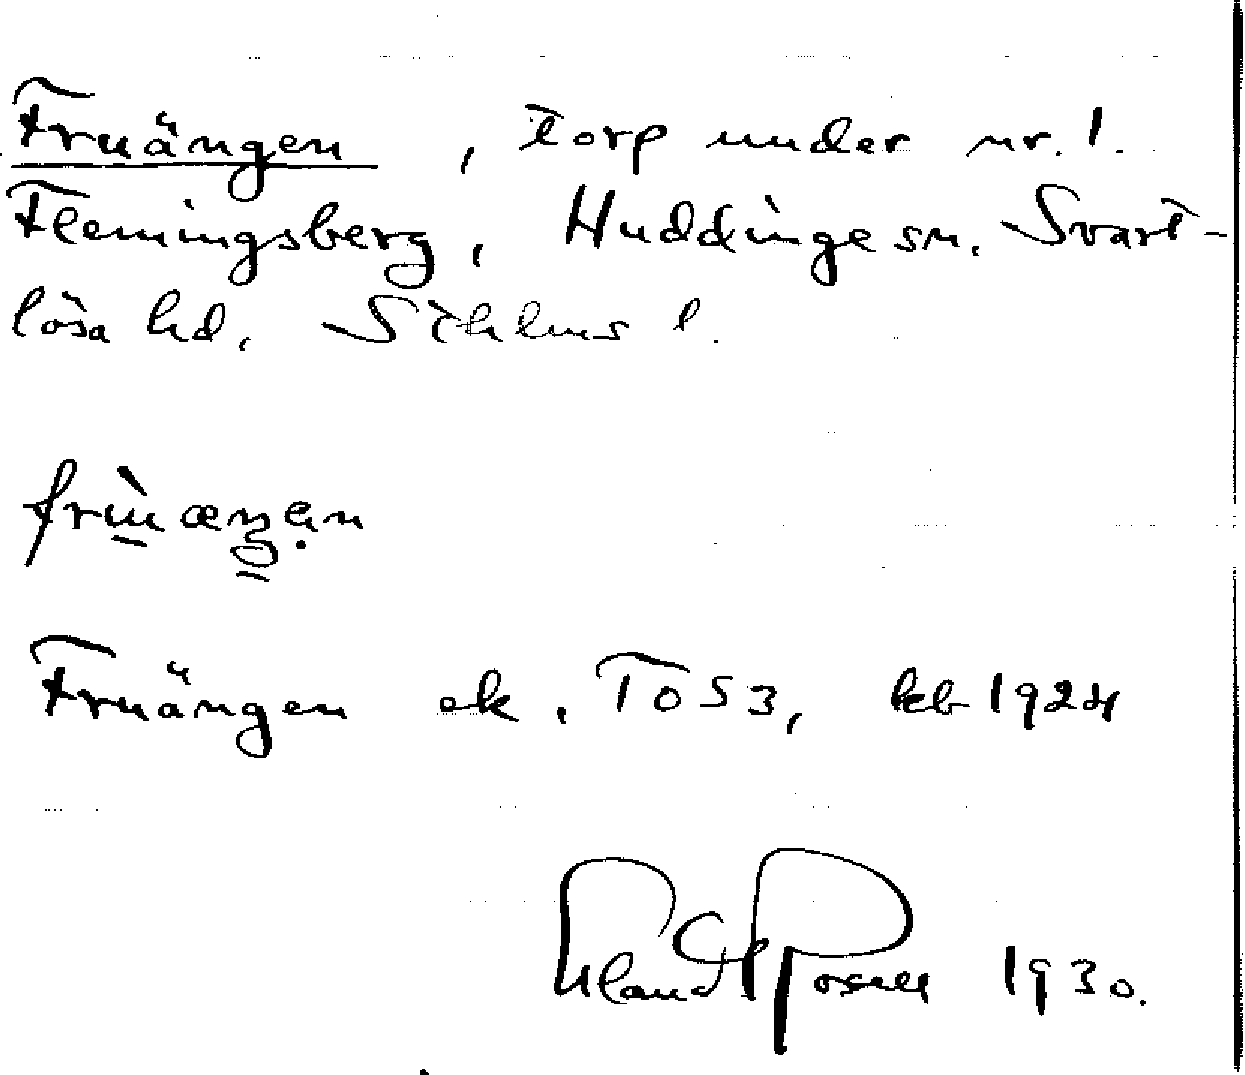 Fruängen, torp under nr. 1.
Flemingsberg, Huddinge sn. Svart-
lösa hd. Sthlms l.
Fruängen ek. T o S 3, kb 1924
1930.